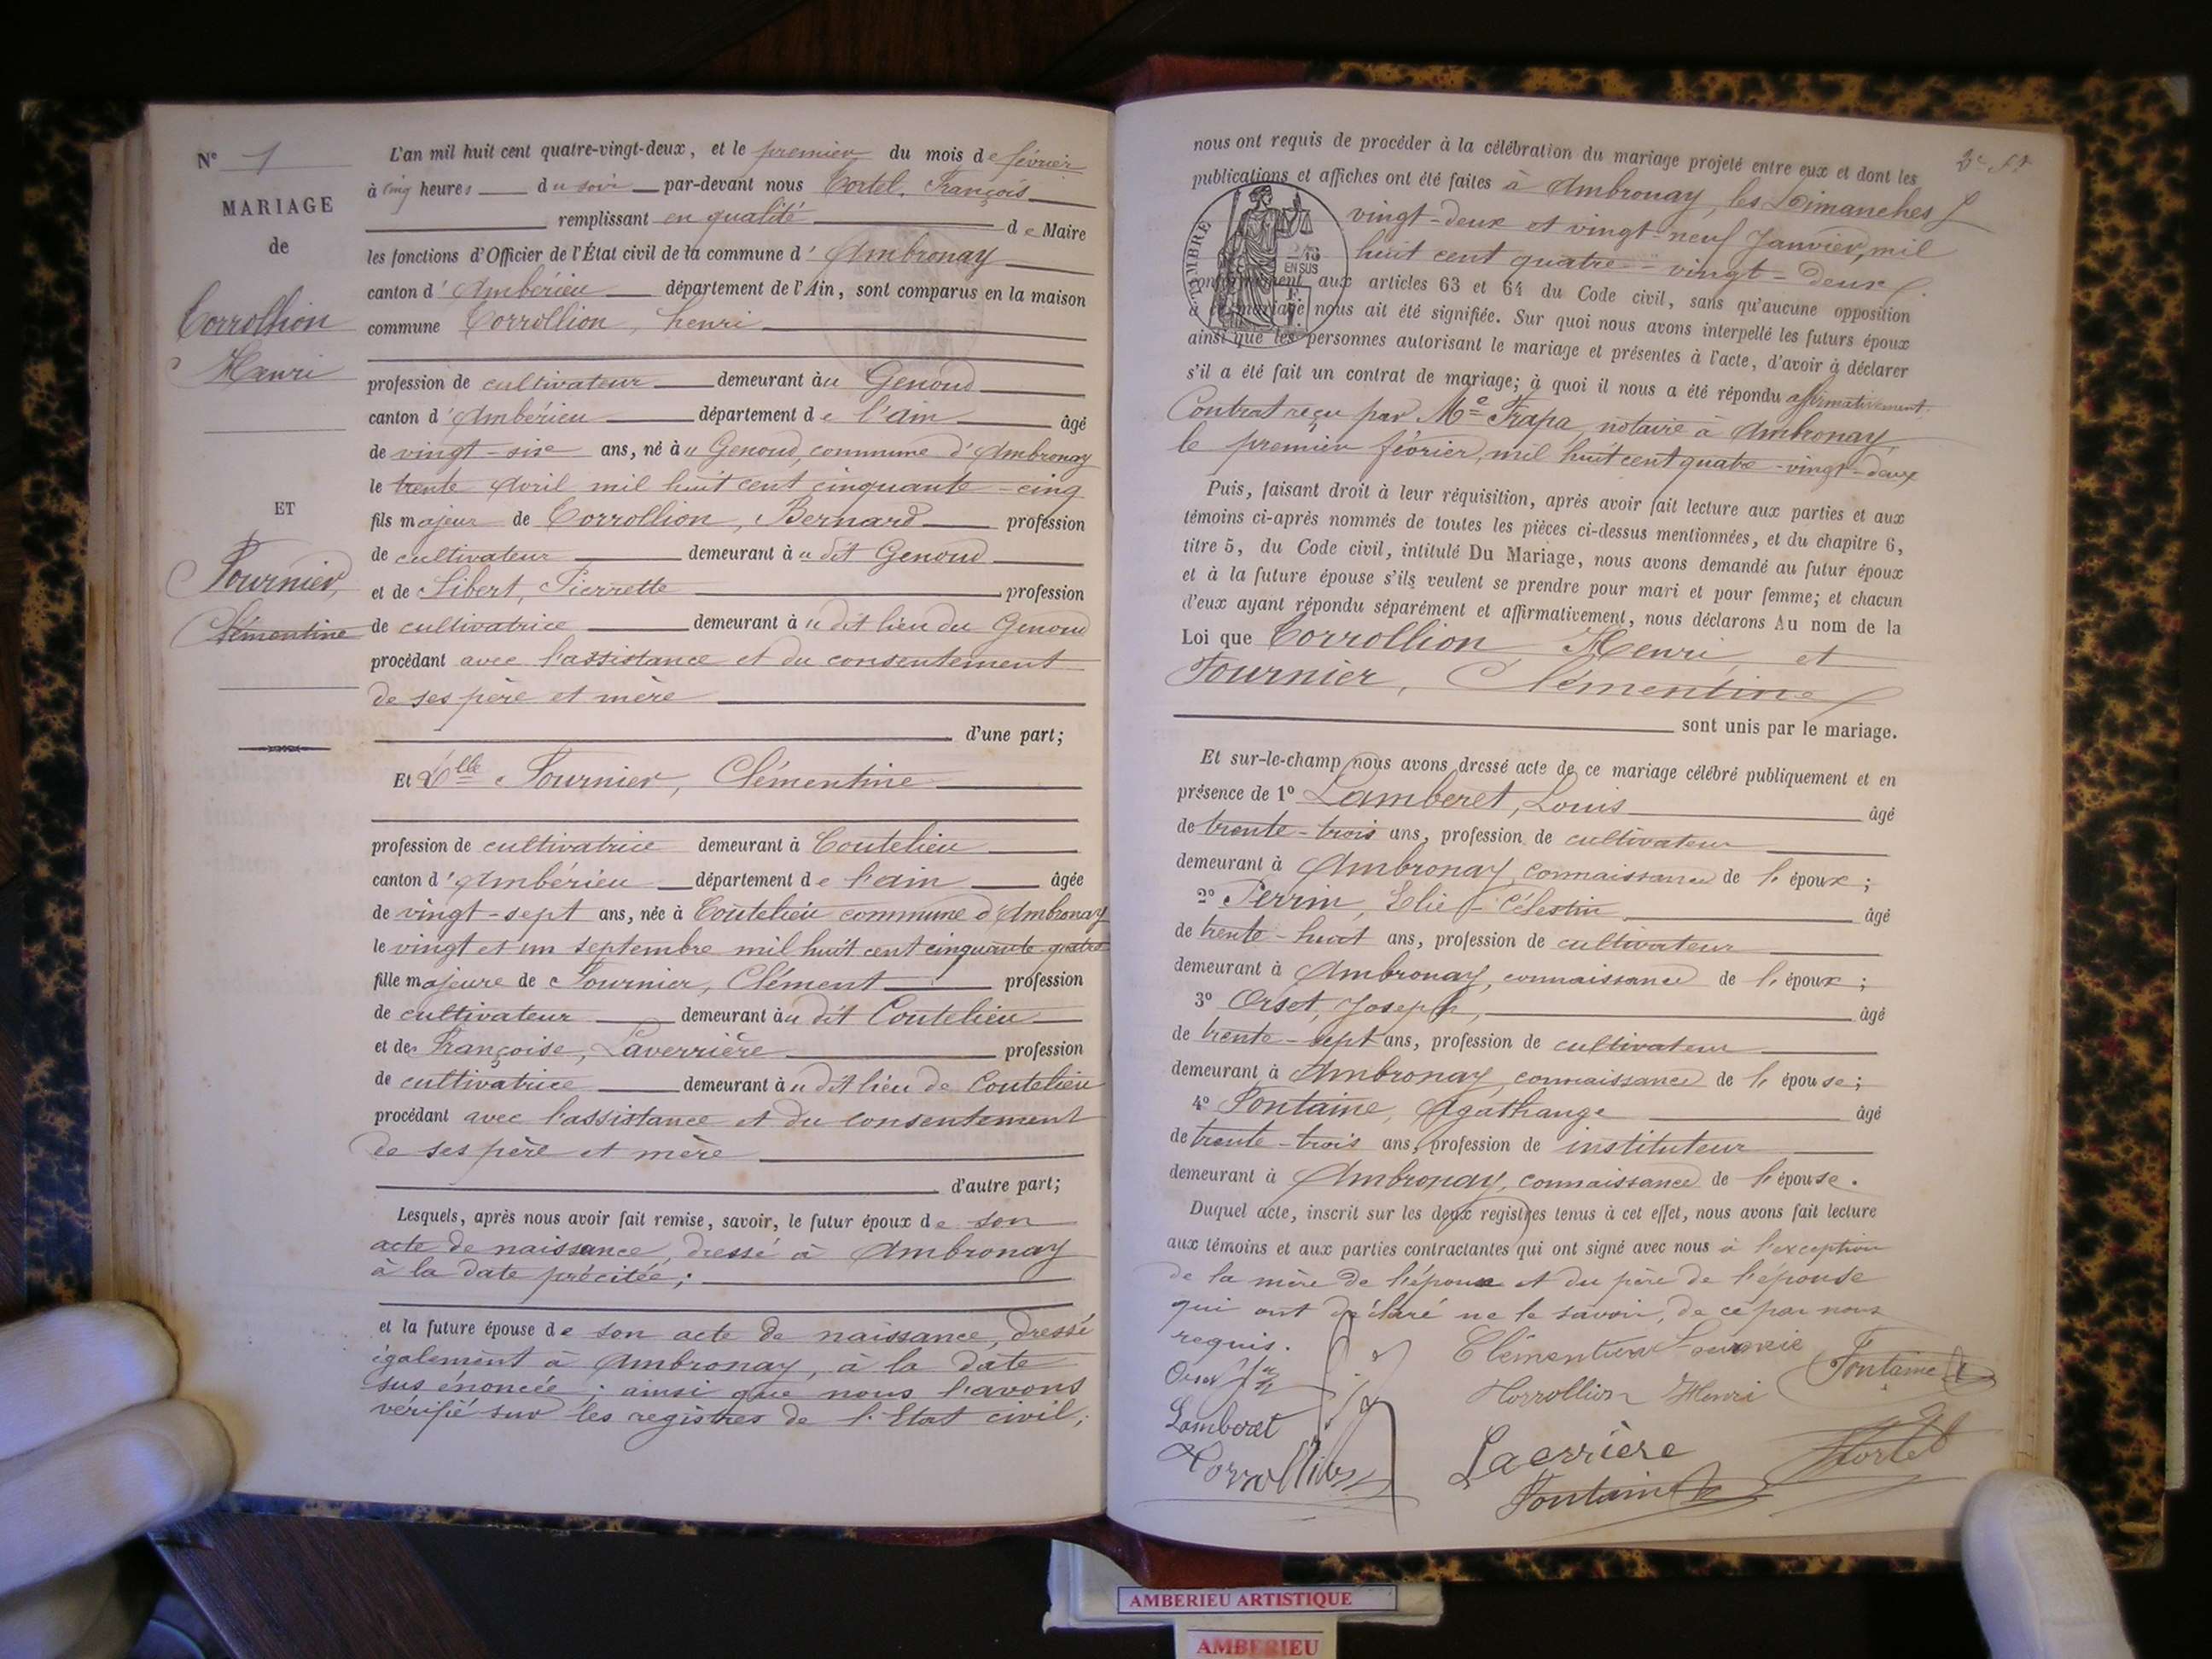 N° 1
MARIAGE
de
Corrollion
Henri
ET
Fournier,
Clémentine
L'an mil huit cent quatre-vingt-deux, et le premier du mois de février
à cinq heures du soir par-devant nous Cortel, François
remplissant en qualité de Maire
les fonctions d'Officier de l'État civil de la commune d'Ambronay
canton d'Ambérieu département de l'Ain, sont comparus en la maison
commune Corrollion, henri
profession de cultivateur demeurant au Genoud
canton d'Ambérieu département de l'ain âgé
de vingt-six ans, né au Genoud, commune d'Ambronay
le trente Avril mil huit cent cinquante-cinq
fils majeur de Corrollion, Bernard profession
de cultivateur demeurant au dit Genoud
et de Libert, Pierrette profession
de cultivatrice demeurant au dit lieu du Genoud
procédant avec l'assistance et du consentement
de ses père et mère
d'une part;
Et Dlle Fournier, Clémentine
profession de cultivatrice demeurant à Coutelieu
canton d'Ambérieu département de l'ain âgée
de vingt-sept ans, née à Coutelieu commune d'Ambronay
le vingt et un septembre mil huit cent cinquante quatre
fille majeure de Fournier, Clément profession
de cultivateur demeurant au dit Coutelieu
et de Françoise, Laverrière profession
de cultivatrice demeurant au dit lieu de Coutelieu
procédant avec l'assistance et du consentement
de ses père et mère
d'autre part;
Lesquels, après nous avoir fait remise, savoir, le futur époux de son
acte de naissance, dressé à Ambronay
à la date précitée;
et la future épouse de son acte de naissance, dressé
également à Ambronay, à la date
sus énoncée; ainsi que nous l'avons
vérifié sur les registres de l'Etat civil;
nous ont requis de procéder à la célébration du mariage projeté entre eux et dont les
publications et affiches ont été faites à Ambronay, les Dimanches
vingt-deux et vingt-neuf Janvier, mil
huit cent quatre-vingt-deux
TIMBRE
EN SUS
conformément aux articles 63 et 64 du Code civil, sans qu'aucune opposition
à ce mariage nous ait été signifiée. Sur quoi nous avons interpellé les futurs époux
ainsi que les personnes autorisant le mariage et présentes à l'acte, d'avoir à déclarer
s'il a été fait un contrat de mariage; à quoi il nous a été répondu affirmativement
Contrat reçu par Me Trapa, notaire à Ambronay,
le premier février, mil huit cent quatre-vingt-deux
Puis, faisant droit à leur réquisition, après avoir fait lecture aux parties et aux
témoins ci-après nommés de toutes les pièces ci-dessus mentionnées, et du chapitre 6,
titre 5, du Code civil, intitulé Du Mariage, nous avons demandé au futur époux
et à la future épouse s'ils veulent se prendre pour mari et pour femme; et chacun
d'eux ayant répondu séparément et affirmativement, nous déclarons Au nom de la
Loi que Corrollion, Henri, et
Fournier, Clémentine
sont unis par le mariage.
Et sur-le-champ nous avons dressé acte de ce mariage célébré publiquement et en
présence de 1° Lamberet, Louis âgé
de trente-trois ans, profession de cultivateur
demeurant à Ambronay, connaissance de l'époux;
2° Perrin, Elie-Célestin âgé
de trente-huit ans, profession de cultivateur
demeurant à Ambronay, connaissance de l'époux;
3° Orset, Joseph, âgé
de trente-sept ans, profession de cultivateur
demeurant à Ambronay, connaissance de l'épouse;
4° Fontaine, Agathange âgé
de trente-trois ans, profession de instituteur
demeurant à Ambronay, connaissance de l'épouse.
Duquel acte, inscrit sur les deux registres tenus à cet effet, nous avons fait lecture
aux témoins et aux parties contractantes qui ont signé avec nous à l'exception
de la mère de l'époux et du père de l'épouse
qui ont déclaré ne le savoir, de ce par nous
requis.
Clémentine Fournie
Fontaine
Corrollion Henri
Lamberet
Corrollion
Laerrière
Cortel
Fontaine
AMBERIEU ARTISTIQUE
AMBERIEU